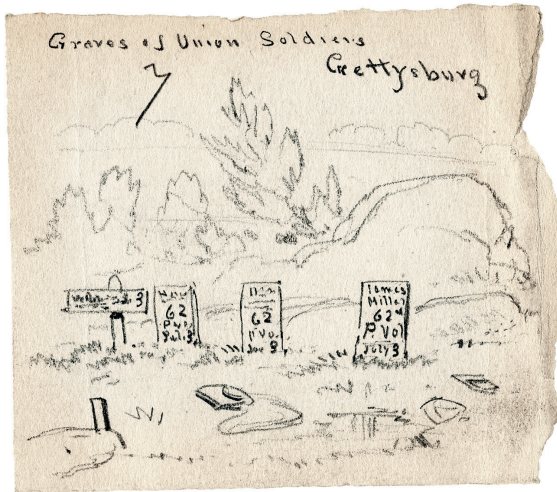 Graves of Union Soldiers
Gettysburg
7
3
62
P Vo
62
P Vo.
3
James
Miller
62nd
P Vol
July 3